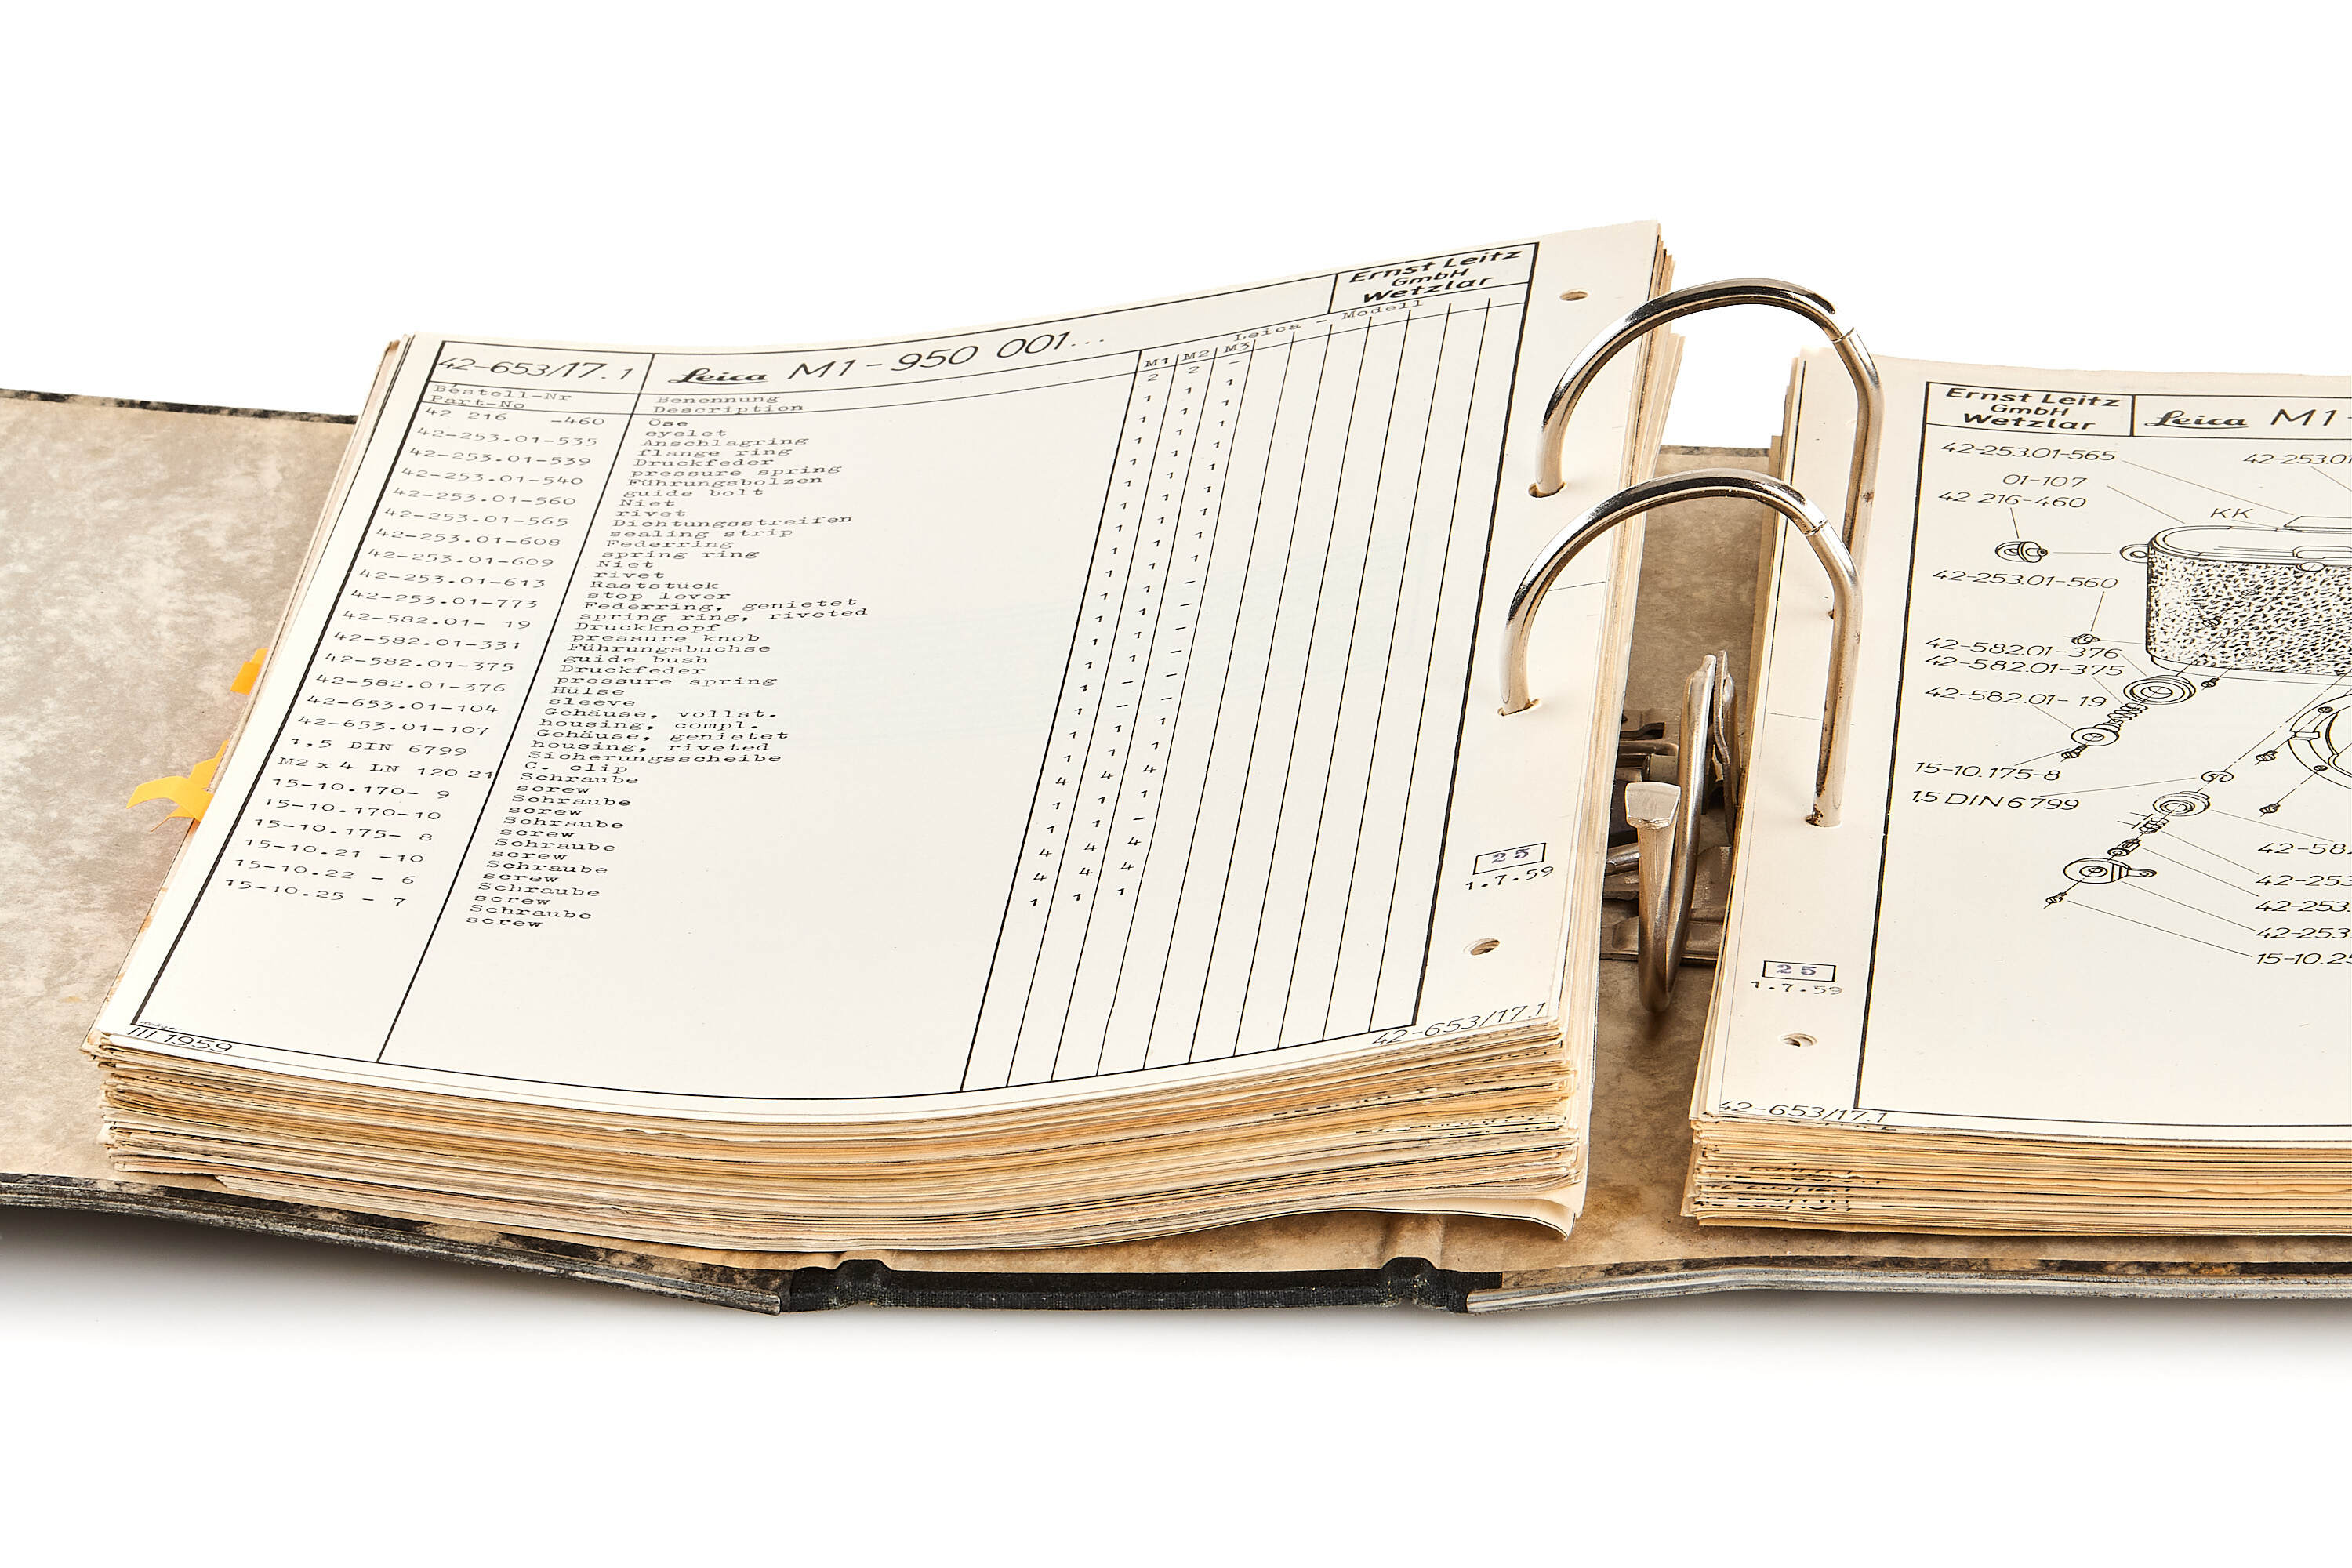 42-653/17.1
Leica M1-950 001...
Ernst Leitz
GmbH
Wetzlar
Bestell-Nr
Part-No
Benennung
Description
Leica - Modell
M1 M2 M3
42 216 -460
42-253.01-535
42-253.01-539
42-253.01-540
42-253.01-560
42-253.01-565
42-253.01-608
42-253.01-609
42-253.01-613
42-253.01-773
42-582.01- 19
42-582.01-331
42-582.01-375
42-582.01-376
42-653.01-104
42-653.01-107
1,5 DIN 6799
M2 x 4 LN 120 21
15-10.170- 9
15-10.170-10
15-10.175- 8
15-10.21 -10
15-10.22 - 6
15-10.25 - 7
Öse
eyelet
Anschlagring
flange ring
Druckfeder
pressure spring
Führungsbolzen
guide bolt
Niet
rivet
Dichtungsstreifen
sealing strip
Federring
spring ring
Niet
rivet
Raststück
stop lever
Federring, genietet
spring ring, riveted
Druckknopf
pressure knob
Führungsbuchse
guide bush
Druckfeder
pressure spring
Hülse
sleeve
Gehäuse, vollst.
housing, compl.
Gehäuse, genietet
housing, riveted
Sicherungsscheibe
C. clip
Schraube
screw
Schraube
screw
Schraube
screw
Schraube
screw
Schraube
screw
Schraube
screw
Schraube
screw
2 2 -
25
1.7.59
III.1959
42-653/17.1
Ernst Leitz
GmbH
Wetzlar
Leica M1-
42-253.01-565
42-253.01
01-107
42 216-460
KK
42-253.01-560
42-582.01-376
42-582.01-375
42-582.01- 19
15-10.175-8
1,5 DIN 6799
42-58
42-253
42-253.
42-253
15-10.2
25
1.7.59
42-653/17.1